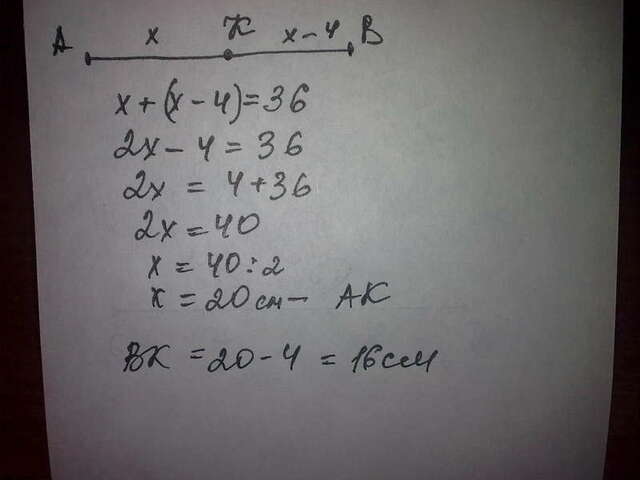 A x K x-4 B
x+(x-4)=36
2x-4=36
2x = 4+36
2x=40
x = 40:2
x = 20 см - AK
BK = 20-4 = 16 см